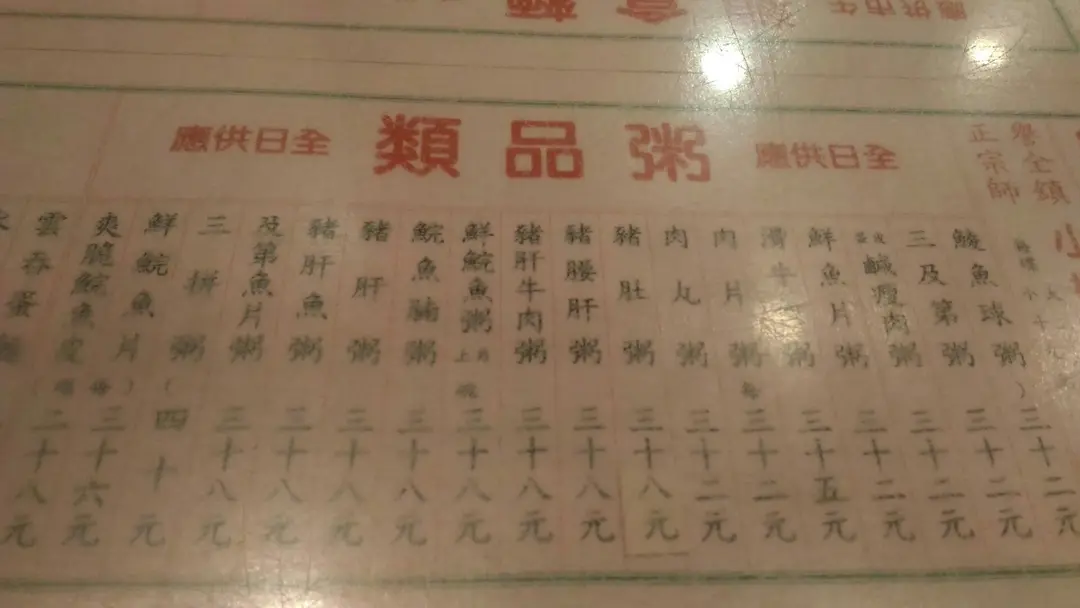 全日供應
粥品類
全日供應
譽全鎮
正宗師
鯪魚球粥 三十二元
三及第粥 三十二元
皮蛋鹹瘦肉粥 三十二元
鮮魚片粥 三十二元
滑牛粥 三十五元
肉片粥 三十二元
肉丸粥 三十二元
豬肚粥 三十八元
豬腰肝粥 三十八元
豬肝牛肉粥 三十八元
鮮鯇魚粥 三十八元
鯇魚腩粥 三十八元
豬肝粥 三十八元
豬肝魚粥 三十八元
及第魚片粥 三十八元
三拼粥 三十八元
鮮鯇魚片 四十元
爽脆鯇魚皮 三十六元
雲吞蛋 二十八元